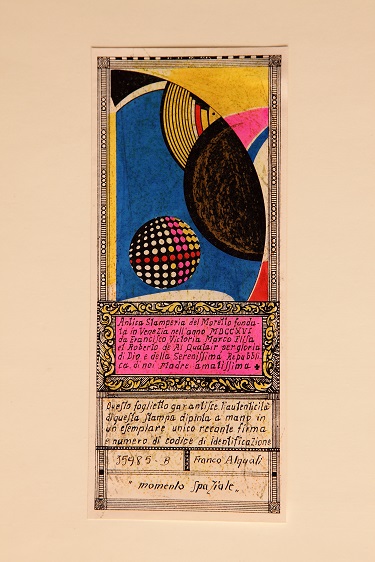 Antica Stamperia del Moretto fonda-
ta in Venezia nell'anno MDCCXVI
da Francisco Victoria Marco Elisa
et Roberto de Al Qualar per gloria
di Dio e della Serenissima Repubbli-
ca di noi Madre amatissima
Questo foglietto garantisce l'autenticità
di questa stampa dipinta a mano in
un esemplare unico recante firma
e numero di codice di identificazione
35985-B Franco Alquati
"momento spaziale"